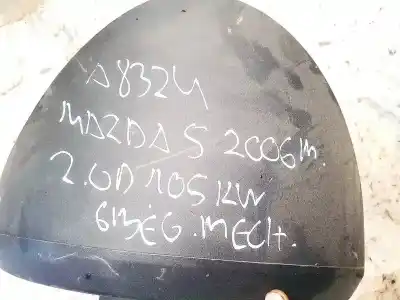 A8324
MAZDA 5 2006m.
2.0D 105KW
6BĖG. MECH.